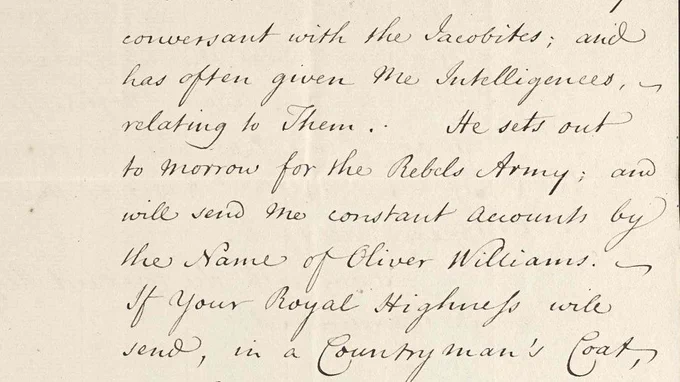 conversant with the Jacobites; and
has often given Me Intelligences,
relating to Them. He sets out
to morrow for the Rebels Army; and
will send Me constant Accounts by
the Name of Oliver Williams.
If Your Royal Highness will
send, in a Countryman's Coat,